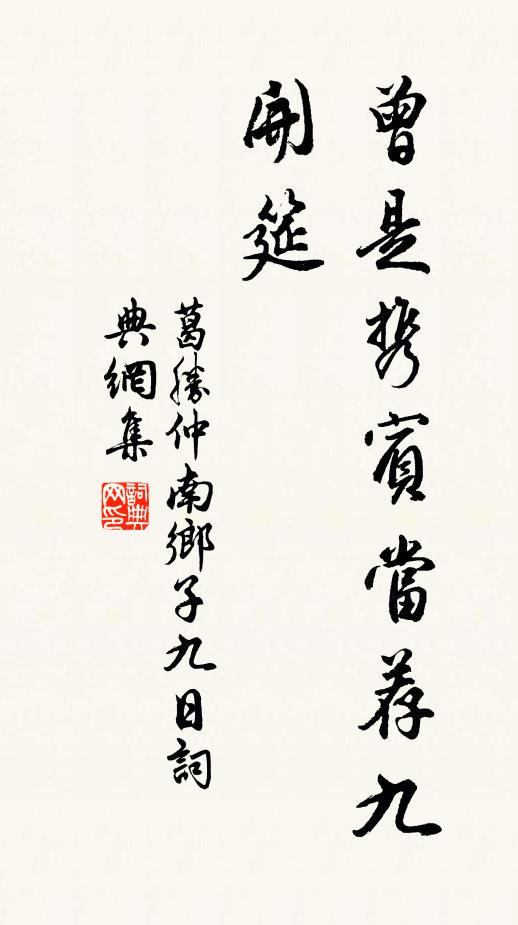 曾是携賓當荐九
開筵
葛勝仲南鄉子九日詞
典網集
詞典
网印